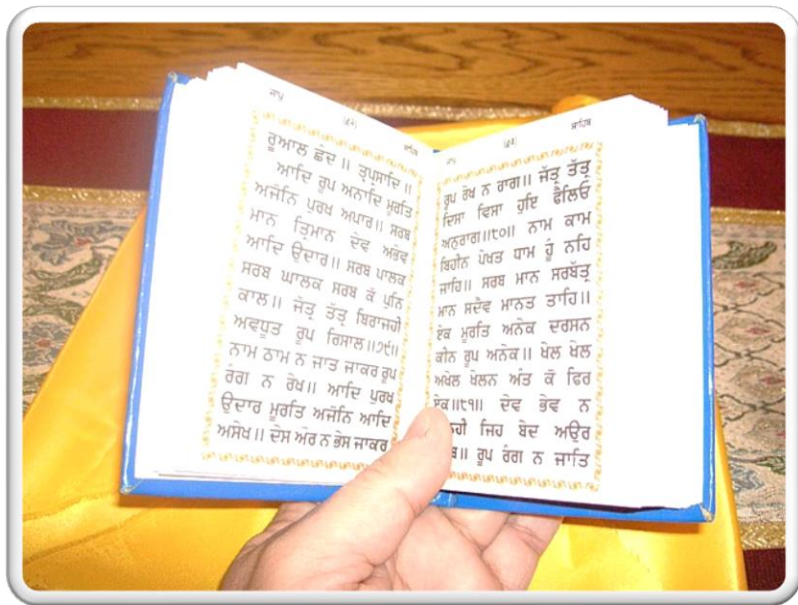 ਜਾਪੁ (੫੨) ਸਾਹਿਬ
ਰੂਆਲ ਛੰਦ ॥ ਤ੍ਵਪ੍ਰਸਾਦਿ ॥
ਆਦਿ ਰੂਪ ਅਨਾਦਿ ਮੂਰਤਿ
ਅਜੋਨਿ ਪੁਰਖ ਅਪਾਰ॥ ਸਰਬ
ਮਾਨ ਤ੍ਰਿਮਾਨ ਦੇਵ ਅਭੇਵ
ਆਦਿ ਉਦਾਰ॥ ਸਰਬ ਪਾਲਕ
ਸਰਬ ਘਾਲਕ ਸਰਬ ਕੋ ਪੁਨਿ
ਕਾਲ॥ ਜੱਤ੍ਰ ਤੱਤ੍ਰ ਬਿਰਾਜਹੀ
ਅਵਧੂਤ ਰੂਪ ਰਿਸਾਲ॥੭੯॥
ਨਾਮ ਠਾਮ ਨ ਜਾਤ ਜਾਕਰ ਰੂਪ
ਰੰਗ ਨ ਰੇਖ॥ ਆਦਿ ਪੁਰਖ
ਉਦਾਰ ਮੂਰਤਿ ਅਜੋਨਿ ਆਦਿ
ਅਸੇਖ॥ ਦੇਸ ਅੌਰ ਨ ਭੇਸ ਜਾਕਰ
ਜਾਪੁ (੫੩) ਸਾਹਿਬ
ਰੂਪ ਰੇਖ ਨ ਰਾਗ॥ ਜੱਤ੍ਰ ਤੱਤ੍ਰ
ਦਿਸਾ ਵਿਸਾ ਹੁਇ ਫੈਲਿਓ
ਅਨੁਰਾਗ॥੮੦॥ ਨਾਮ ਕਾਮ
ਬਿਹੀਨ ਪੇਖਤ ਧਾਮ ਹੂੰ ਨਹਿ
ਜਾਹਿ॥ ਸਰਬ ਮਾਨ ਸਰਬੱਤ੍ਰ
ਮਾਨ ਸਦੈਵ ਮਾਨਤ ਤਾਹਿ॥
ਏਕ ਮੂਰਤਿ ਅਨੇਕ ਦਰਸਨ
ਕੀਨ ਰੂਪ ਅਨੇਕ॥ ਖੇਲ ਖੇਲ
ਅਖੇਲ ਖੇਲਨ ਅੰਤ ਕੋ ਫਿਰ
ਏਕ॥੮੧॥ ਦੇਵ ਭੇਵ ਨ
ਜਿਹ ਬੇਦ ਅਉਰ
ਰੂਪ ਰੰਗ ਨ ਜਾਤਿ